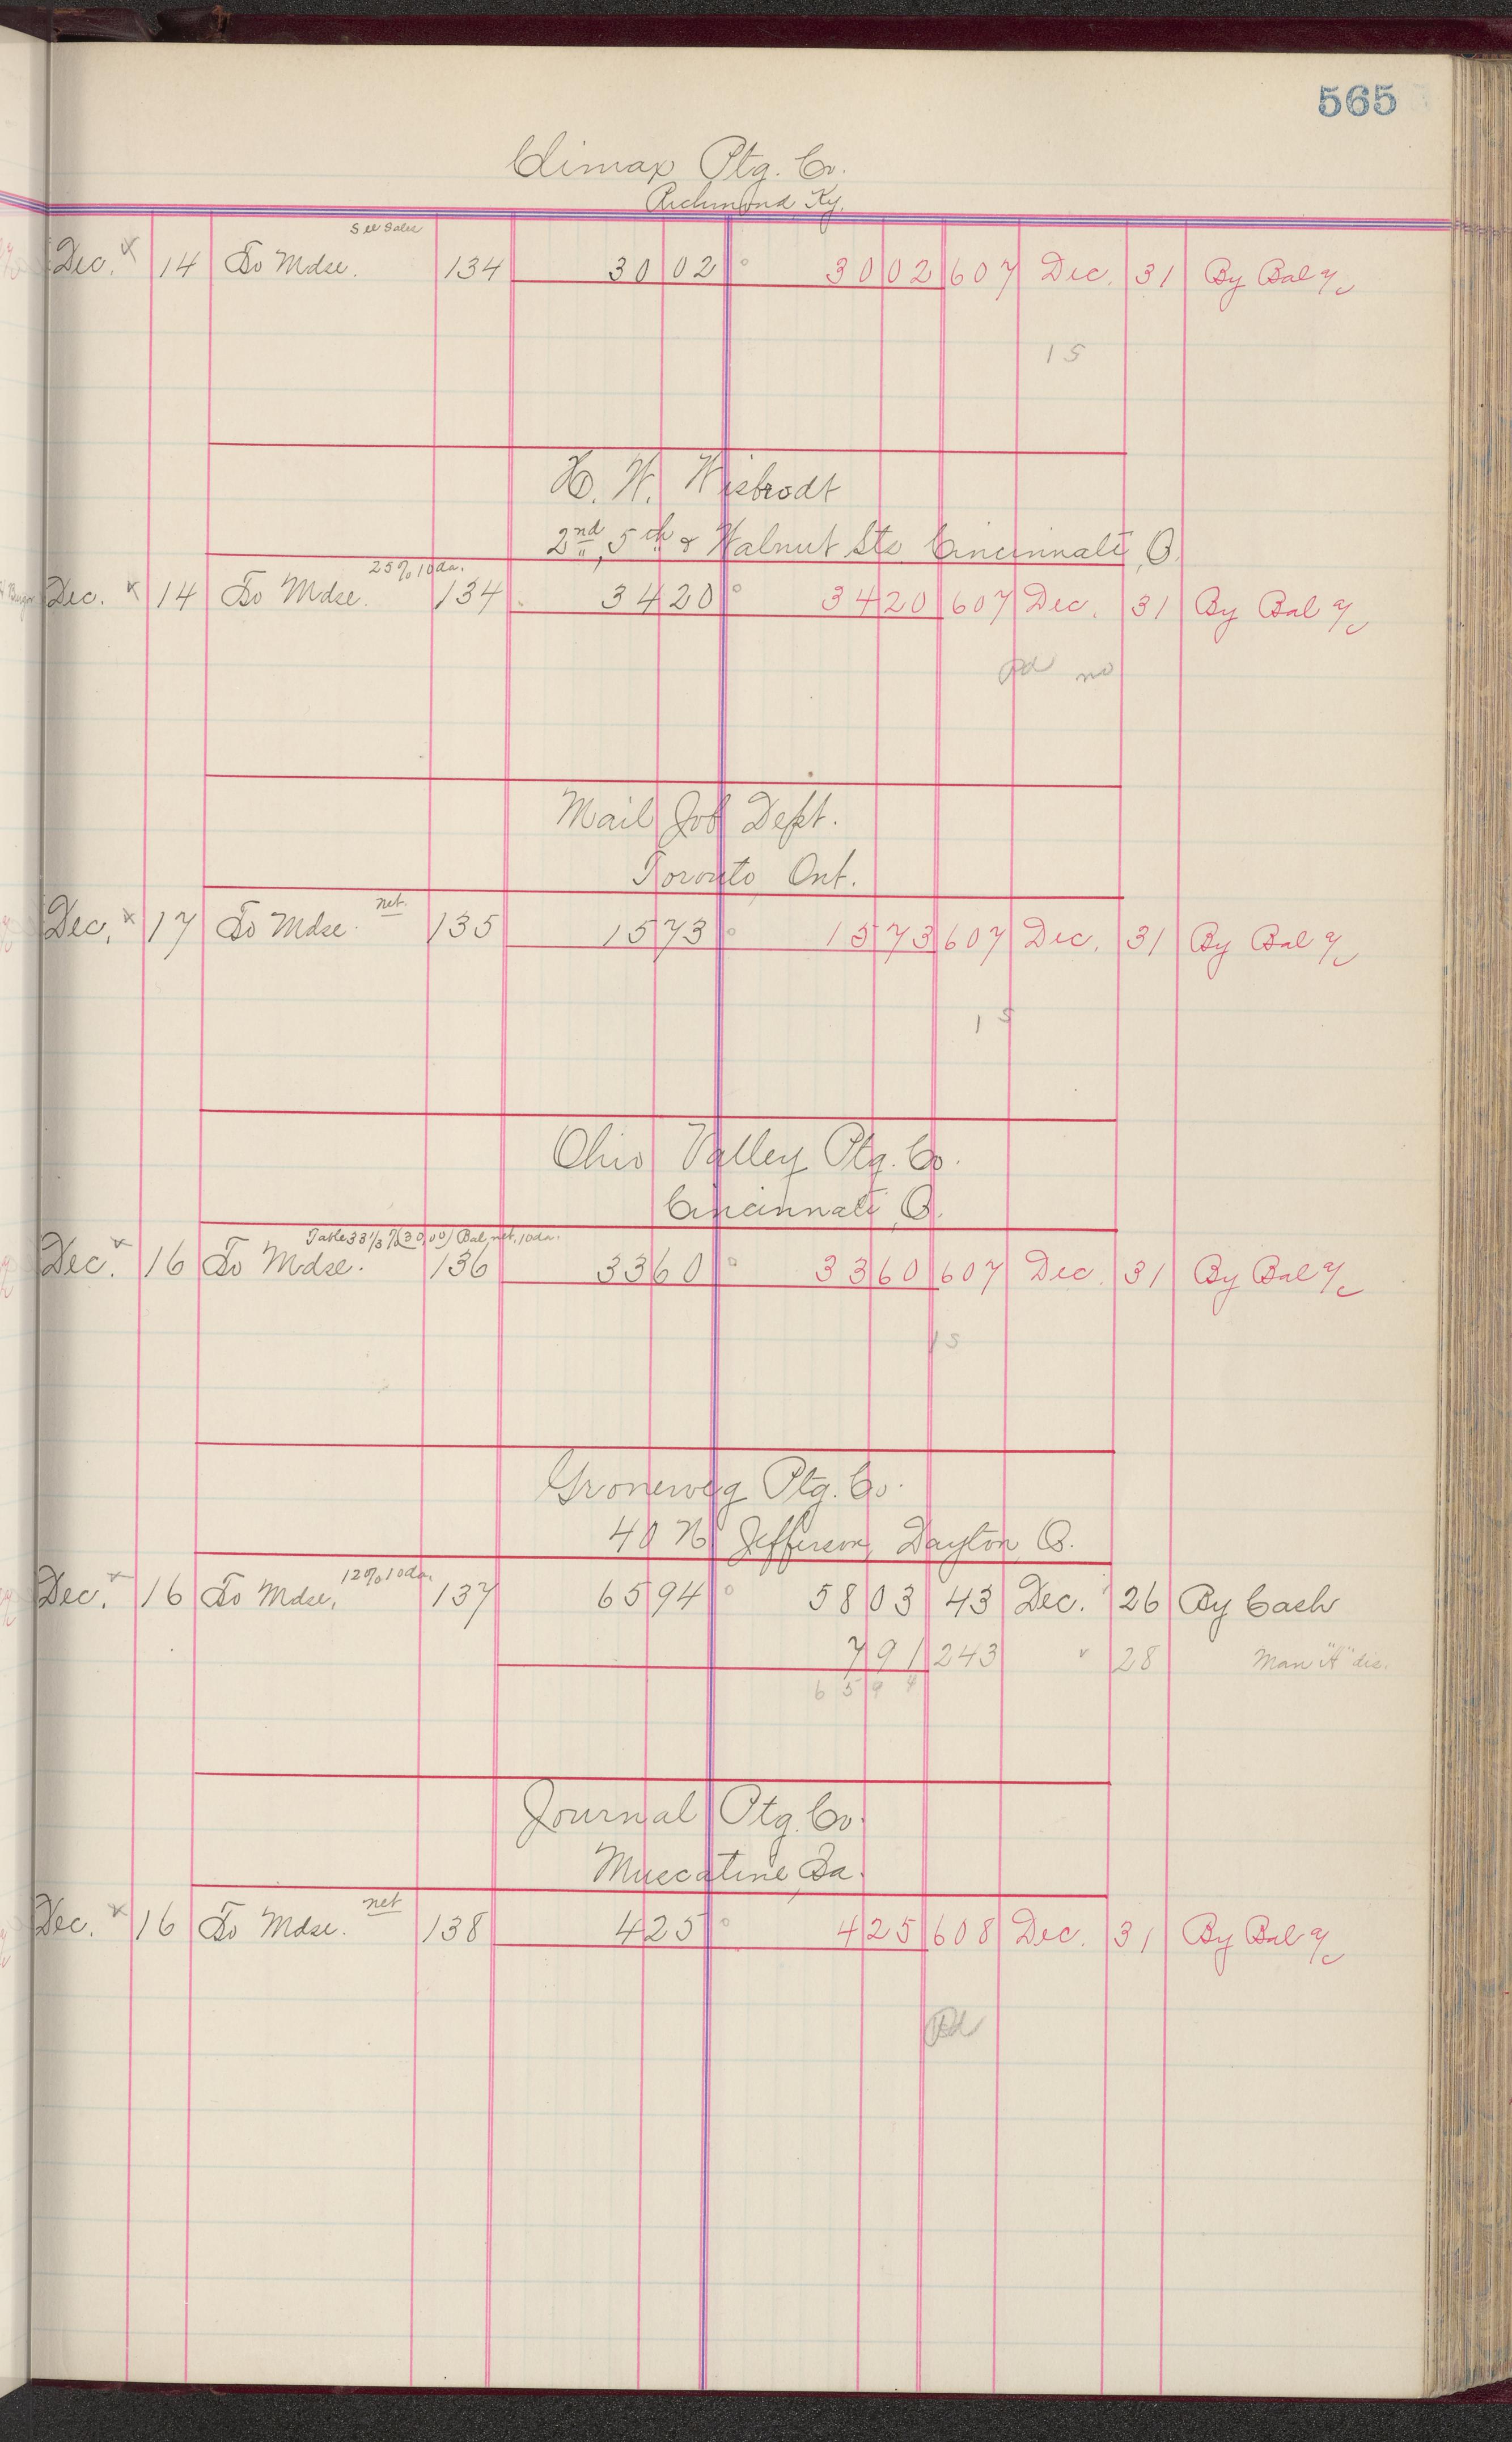 565
Climax Ptg. Co.
Richmond Ky.
See Sales
Dec. x 14 To Mdse. 134 30 02 30 02 607 Dec. 31 By Bal a/c
15
H. W. Wisbrodt
2nd, 5th & Walnut Sts. Cincinnati, O.
25% 10 da.
Dec. x 14 To Mdse. 134 34 20 34 20 607 Dec. 31 By Bal a/c
Pd no
Mail Job Dept.
Toronto Ont.
net
Dec. x 17 To Mdse. 135 15 73 15 73 607 Dec. 31 By Bal a/c
15
Ohio Valley Ptg. Co.
Cincinnati, O.
Table 33 1/3 % (30.00) Bal. net. 10 da.
Dec. x 16 To Mdse. 136 33 60 33 60 607 Dec. 31 By Bal a/c
15
Groneweg Ptg. Co.
40 N Jefferson, Dayton, O.
12% 10 da.
Dec. x 16 To Mdse. 137 65 94 58 03 43 Dec. 26 By Cash
7 91 243 " 28 Man "A" dis.
65 94
Journal Ptg. Co.
Muscatine, Ia.
net
Dec. x 16 To Mdse. 138 4 25 4 25 608 Dec. 31 By Bal a/c
Pd